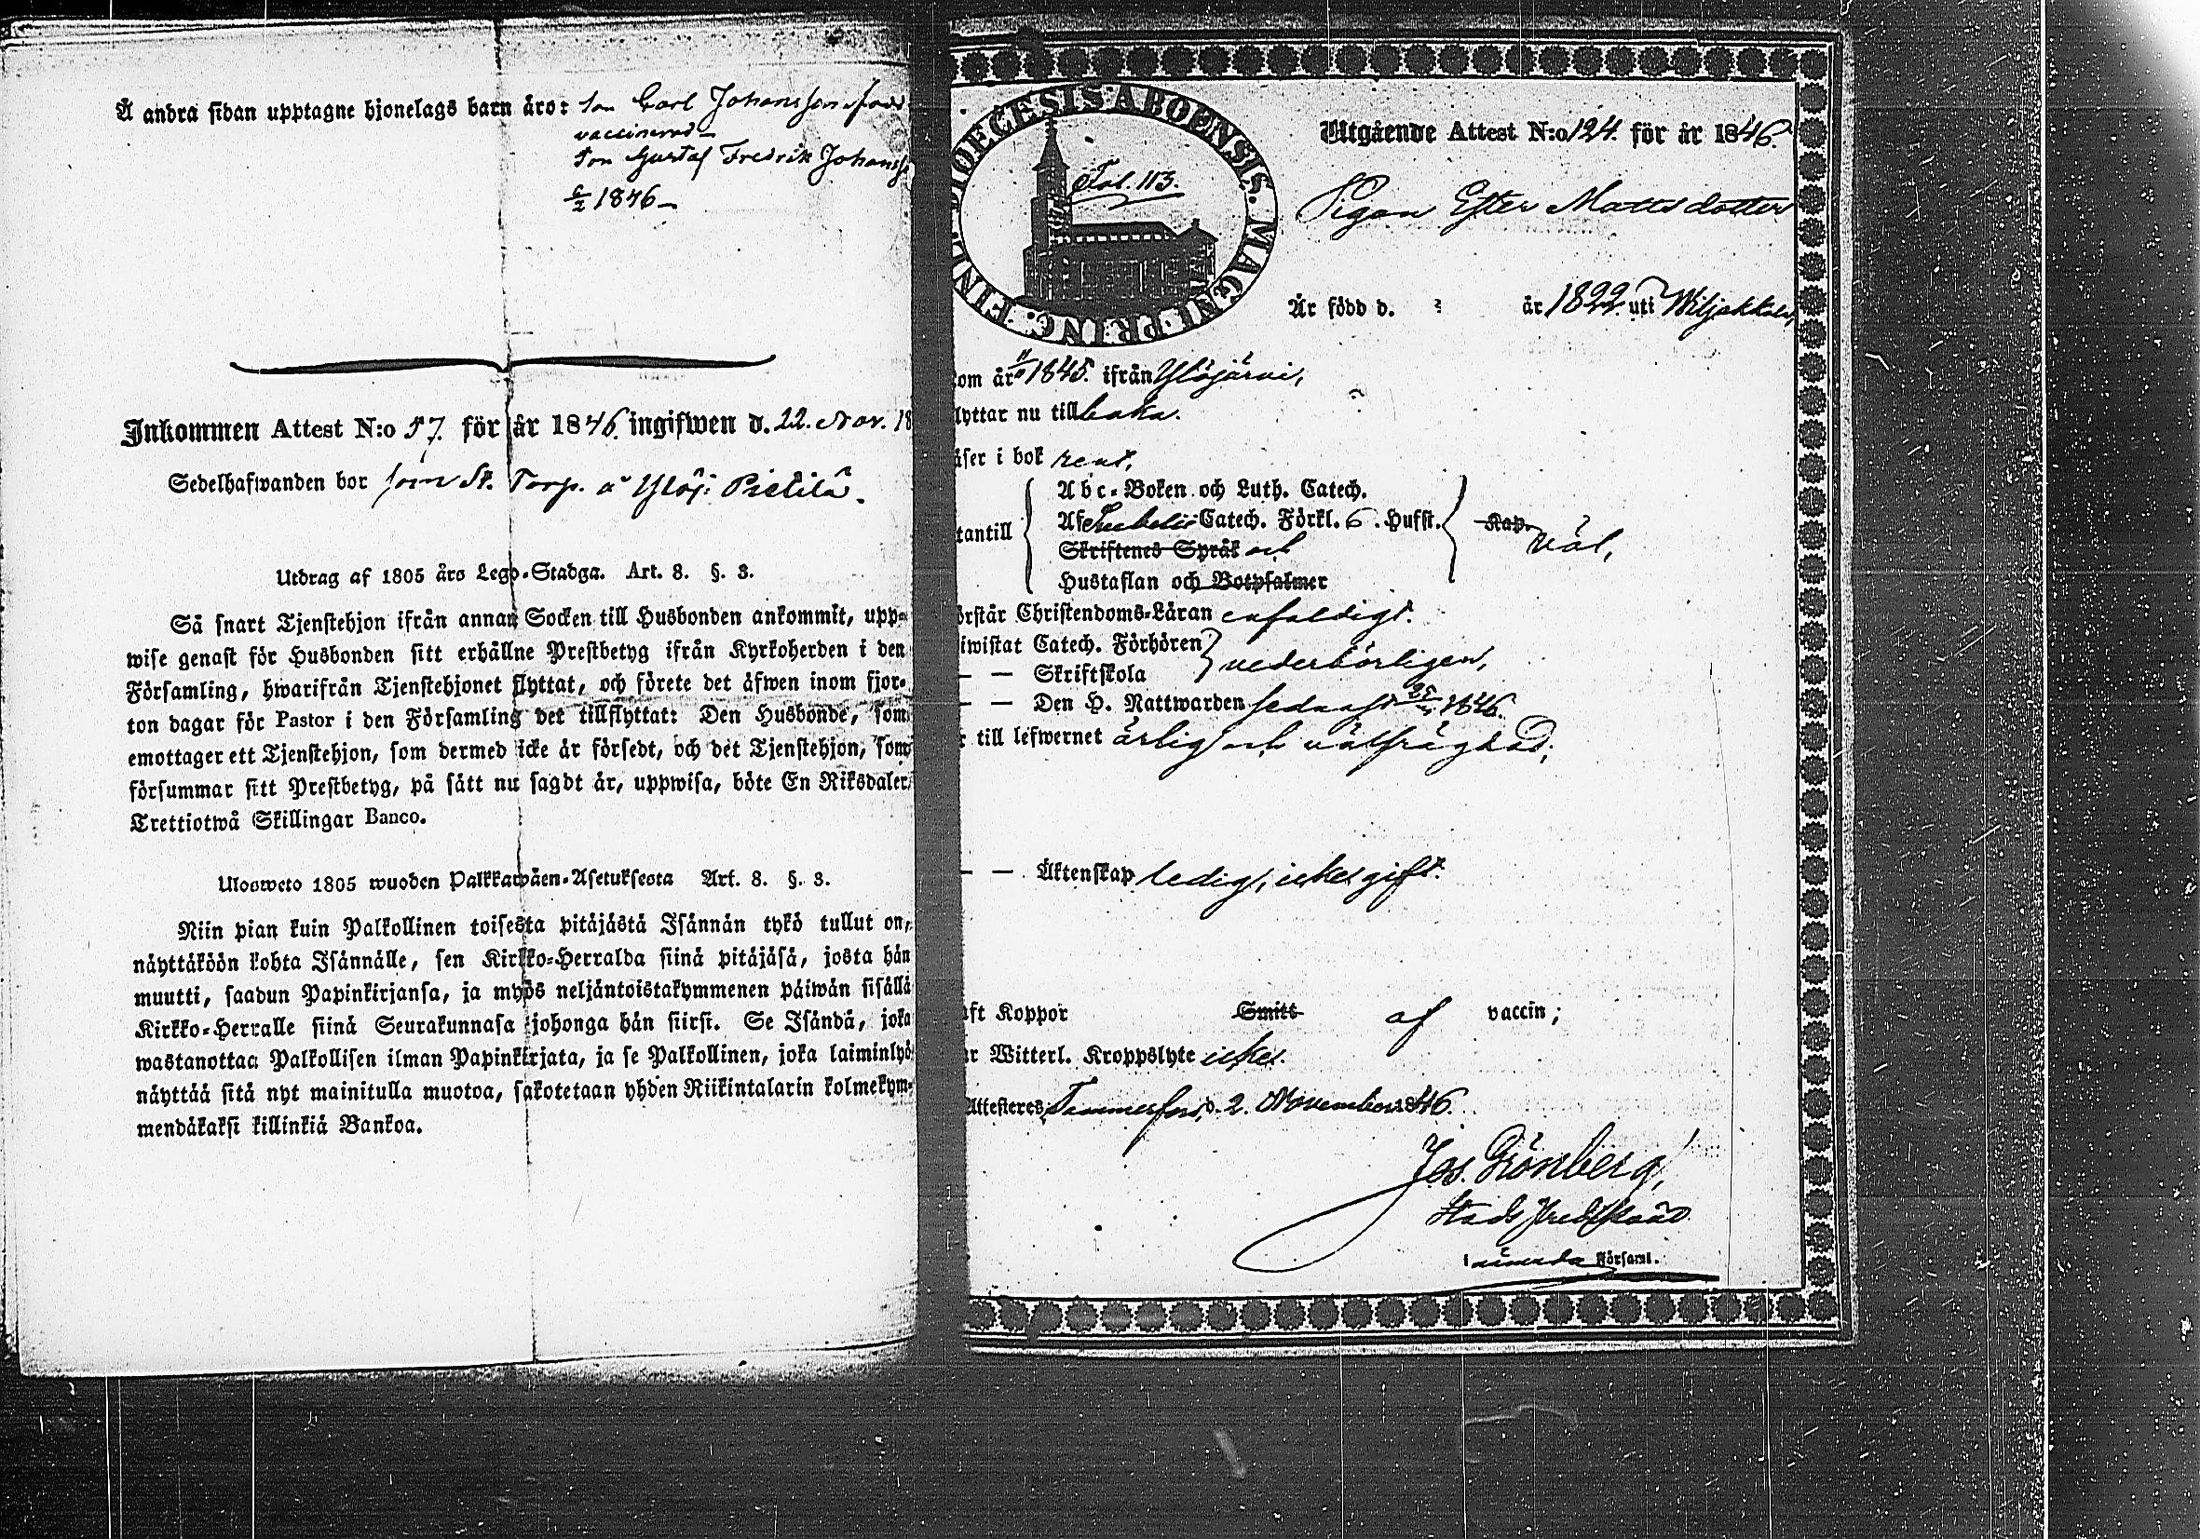 Å andra sidan upptagne hjonelags barn äro: son Carl Johansson född
vaccinerad –
Son Gustaf Fredrik Johanss
6/2 1846 –
Inkommen Attest N:o 57. för år 1846. ingifwen d. 22. Nov. 18
Sedelhafwanden bor som St. Torp. å Ylöj: Pietilä.
Utdrag af 1805 års Lego-Stadga. Art. 8. §. 3.
Så snart Tjenstehjon ifrån annan Socken till Husbonden ankommit, upp-
wise genast för Husbonden sitt erhållne Prestbetyg ifrån Kyrkoherden i den
Församling, hwarifrån Tjenstehjonet flyttat, och förete det äfwen inom fjor-
ton dagar för Pastor i den Församling det tillflyttat: Den Husbonde, som
emottager ett Tjenstehjon, som dermed icke är försedt, och det Tjenstehjon, som
försummar sitt Prestbetyg, på sätt nu sagdt är, uppwisa, böte En Riksdaler
Trettiotwå Skillingar Banco.
Ulosweto 1805 wuoden Palkkawäen-Asetuksesta Art. 8. §. 3.
Niin pian kuin Palkollinen toisesta pitäjästä Isännän tykö tullut on,
näyttäköön kohta Isännälle, sen Kirkko-Herralda siinä pitäjäsä, josta hän
muutti, saadun Papinkirjansa, ja myös neljäntoistakymmenen päiwän sisällä
Kirkko-Herralle siinä Seurakunnasa johonga hän siirsi. Se Isändä, joka
wastanottaa Palkollisen ilman Papinkirjata, ja se Palkollinen, joka laiminlyö
näyttää sitä nyt mainitulla muotoa, sakotetaan yhden Riikintalarin kolmekym-
mendäkaksi killinkiä Bankoa.
DIOECESIS ABOENSIS. MAGNI PRINC. FINL.
Fol. 113.
Utgående Attest N:o 124. för år 1846.
Pigan Ester Mattsdotter
Är född d. ? år 1822 uti Wiljakkala,
om år 1845. ifrån Ylöjärvi,
lyttar nu till baka.
äser i bok rent,
Abc-Boken och Luth. Catech.
tantill Af Svebelii Catech. Förkl. 6. Hufst. Kap. väl,
Skriftenes Språk och
Hustaflan och Botpsalmer
örstår Christendoms-Läran enfaldigt.
iwistat Catech. Förhören vederbörligen,
— — Skriftskola
— — Den H. Nattwarden sednast 1846.
till lefwernet ärlig och välfrägdad;
— — Äktenskap ledig, icke gift.
aft Koppor Smitt af vaccin;
ar Witterl. Kroppslyte icke.
Attesteres, Tammerfors, d. 2. November 1846.
Jos. Grönberg,
Stads Predikant
i nämnda Församl.